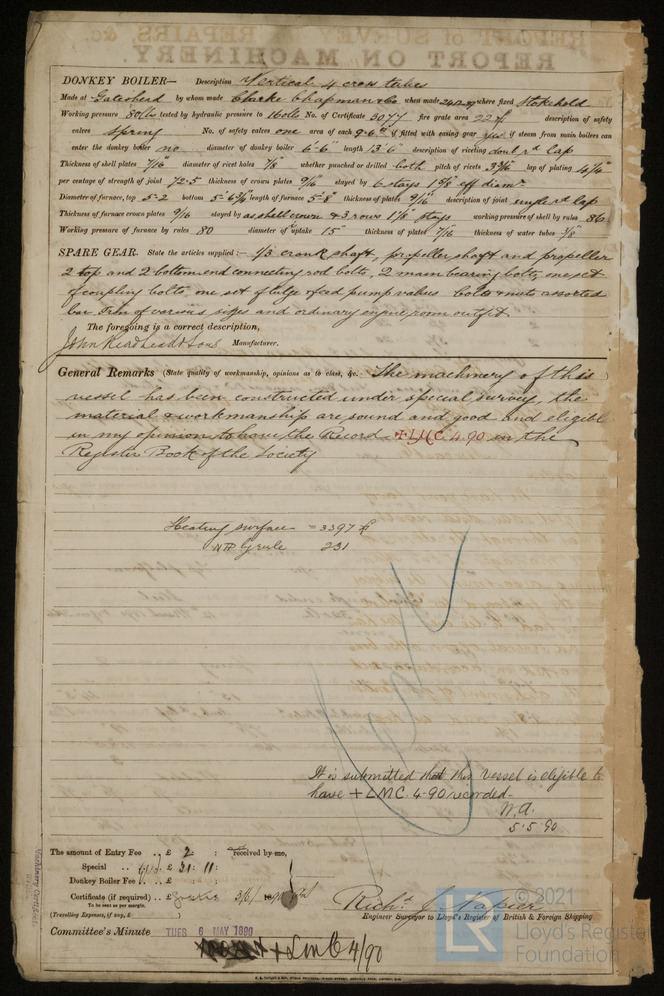 DONKEY BOILER— Description Vertical 4 cross tubes
Made at Gateshead by whom made Clarke Chapman & Co when made where fixed Stokehold
Working pressure 80lbs tested by hydraulic pressure to 160lbs No. of Certificate 3077 fire grate area 22 description of safety
valves Spring No. of safety valves one area of each 9.6 if fitted with easing gear yes if steam from main boilers can
enter the donkey boiler no diameter of donkey boiler 6'6" length 13'6" description of riveting double rd lap
Thickness of shell plates 7/16" diameter of rivet holes 7/8 whether punched or drilled both pitch of rivets lap of plating 4 1/4"
per centage of strength of joint 72.5 thickness of crown plates 9/16 stayed by 6 stays 1 5/8 eff diamr
Diameter of furnace, top 5-2 bottom length of furnace 5'8" thickness of plates 9/16 description of joint single rd lap
Thickness of furnace crown plates 9/16 stayed by as shell crown & 3 rows 1 1/8" stays working pressure of shell by rules 86
Working pressure of furnace by rules 80 diameter of uptake 15" thickness of plates 7/16 thickness of water tubes 3/8"
SPARE GEAR. State the articles supplied:— 1/3 crank shaft, propeller shaft and propeller
2 top and 2 bottom end connecting rod bolts, 2 main bearing bolts, one set
of coupling bolts, one set of bilge & feed pump valves bolts & nuts assorted
bar iron of various sizes and ordinary engine room outfit
The foregoing is a correct description,
John Readhead & Sons Manufacturer.
General Remarks (State quality of workmanship, opinions as to class, &c. The machinery of this
vessel has been constructed under special survey, the
material & workmanship are sound and good and eligible
in my opinion to have the Record +LMC 4.90 in the
Register Book of the Society
Heating surface = 3397
NHP 231
It is submitted that this Vessel is eligible to
have +LMC 4.90 recorded.
5.5.90
The amount of Entry Fee .. £ 2 : : received by me,
Special .. £ 31 : 11 :
Donkey Boiler Fee .. £ : :
Certificate (if required) .. £
To be sent as per margin.
(Travelling Expenses, if any, £ )
Richd J. Napier
Engineer Surveyor to Lloyd's Register of British & Foreign Shipping
Committee's Minute TUES 6 MAY 1890
+ LMC 4/90
Machinery Certificate
© 2021
Lloyd's Register
Foundation
LR
REPORT of SURVEY for REPAIRS, &c.
REPORT ON MACHINERY.